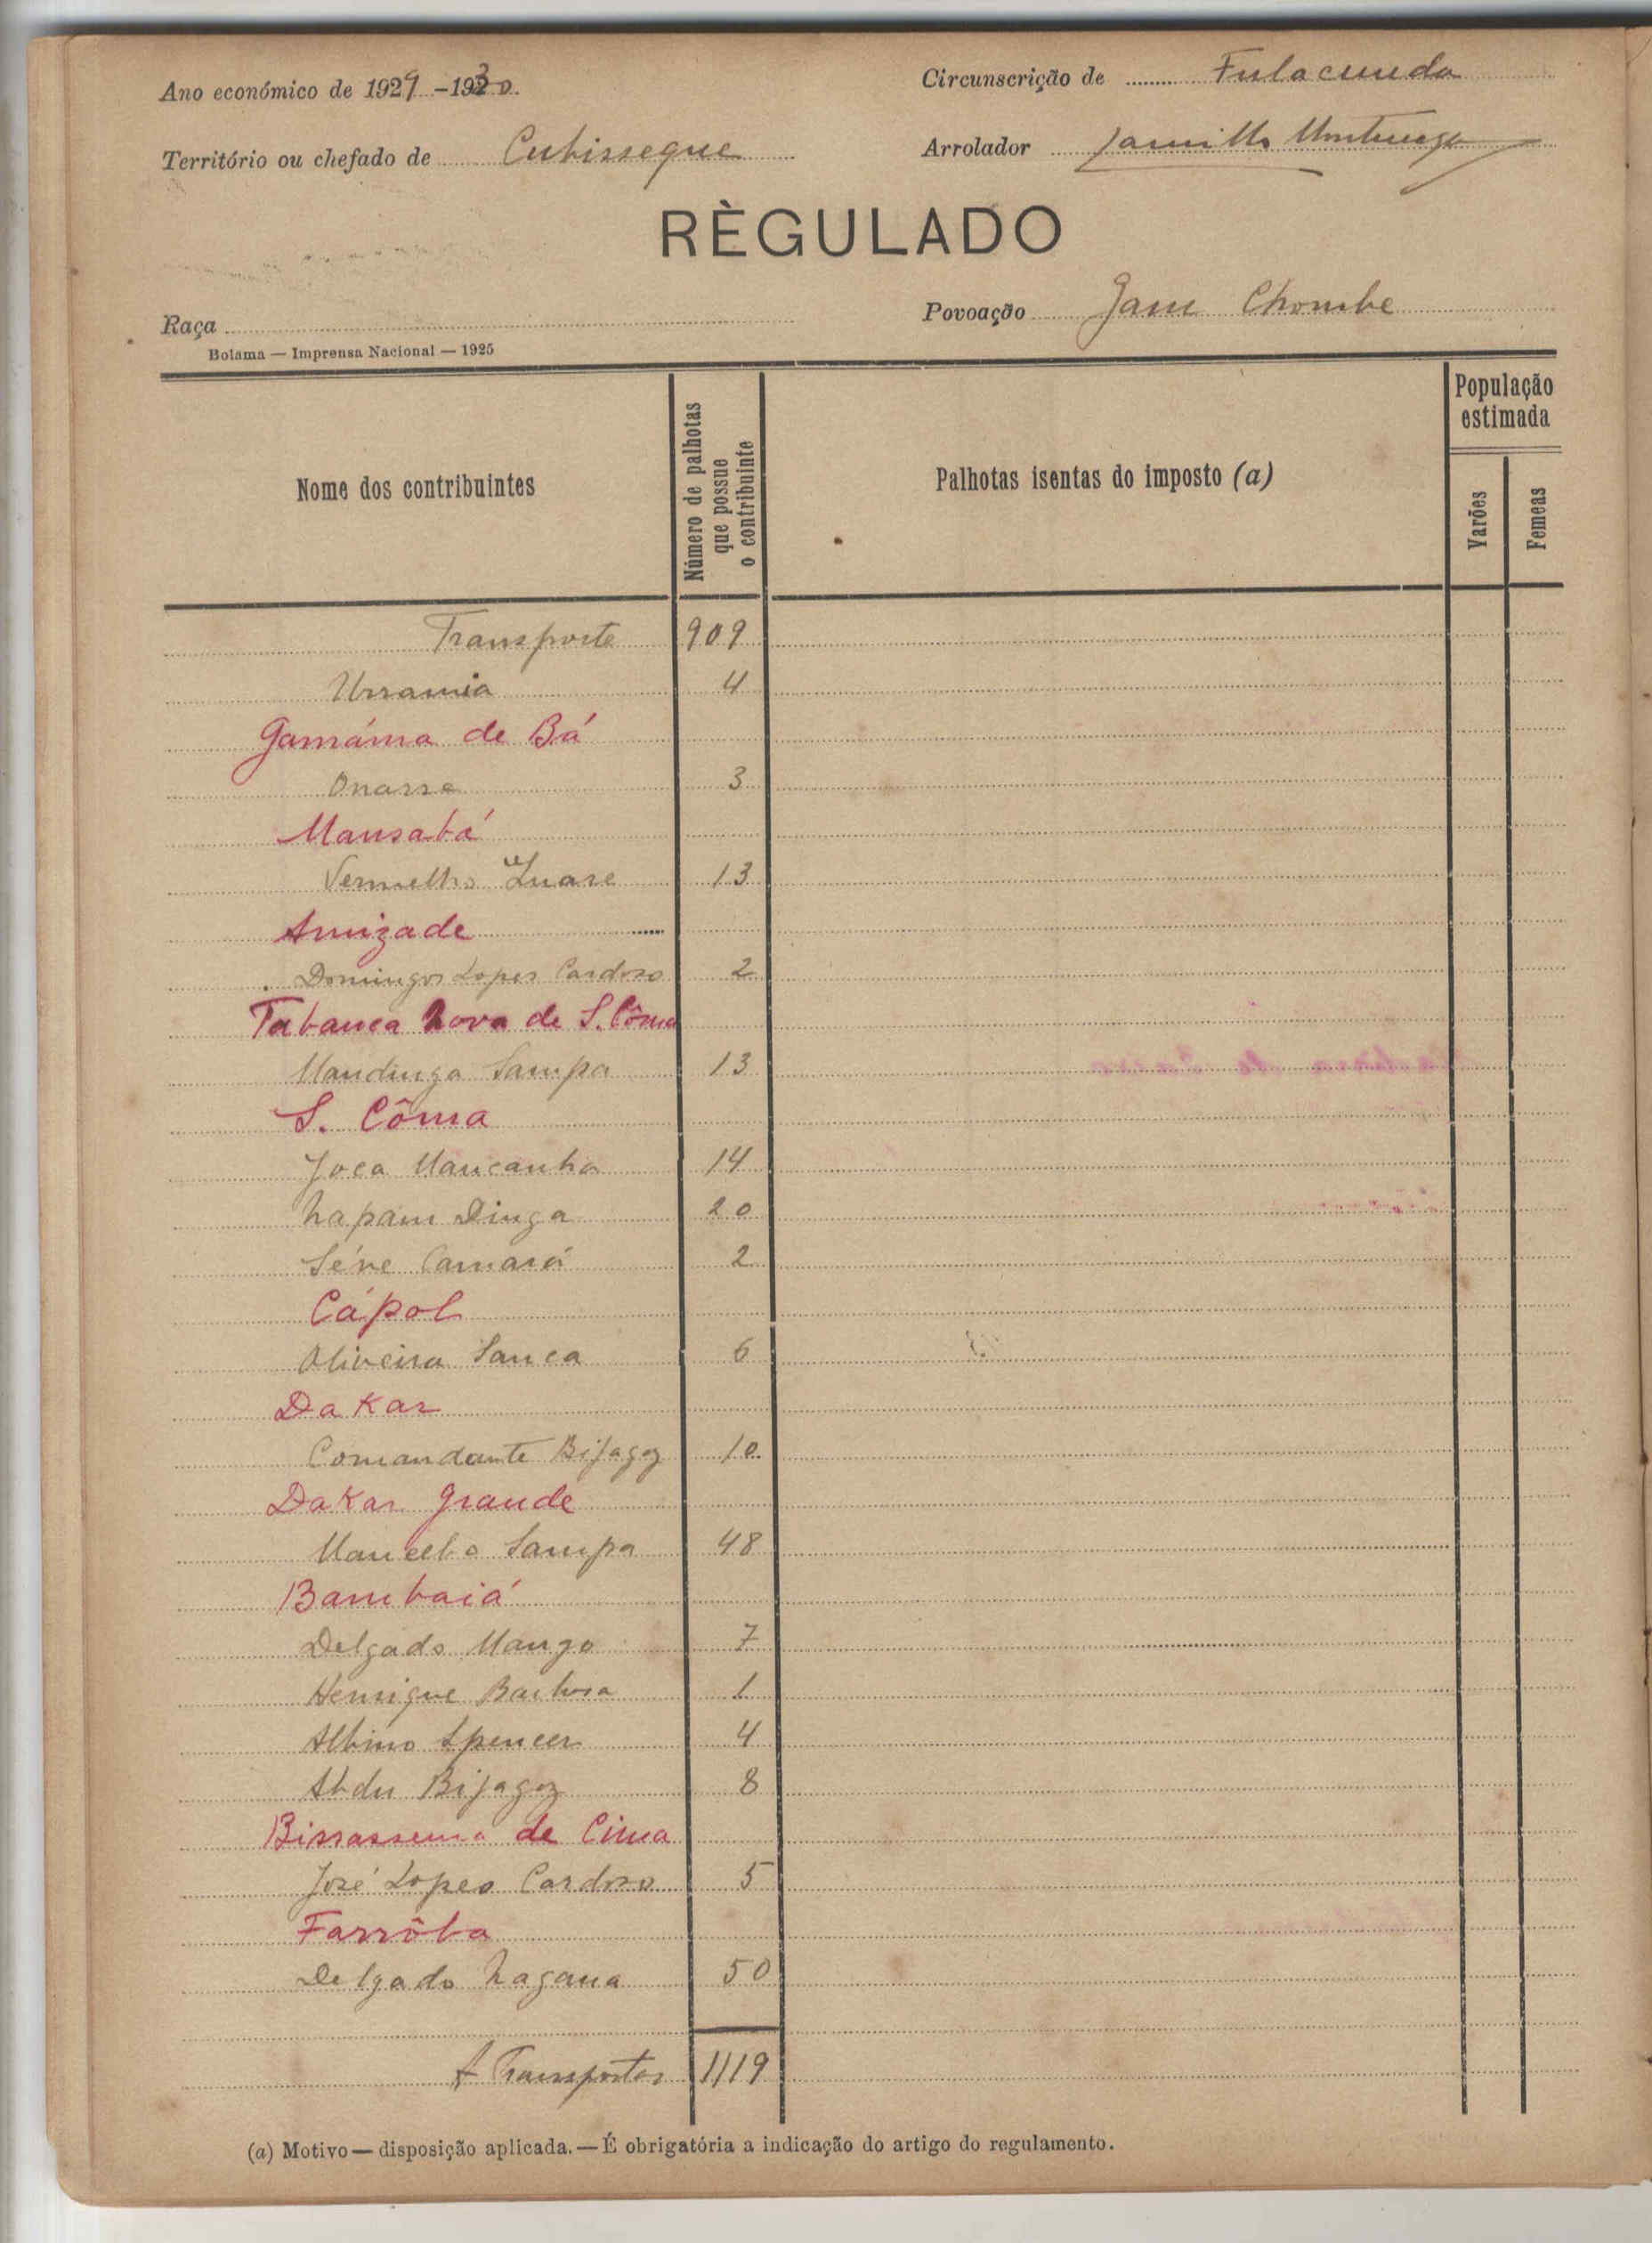 Ano económico de 1929-1930.
Circunscrição de Fulacunda
Território ou chefado de Cubisseque
Arrolador
RÈGULADO
Raça
Povoação Jam Chombe
Bolama — Imprensa Nacional — 1925
Nome dos contribuintes
Número de palhotas que possue o contribuinte
Palhotas isentas do imposto (a)
População estimada
Varões
Femeas
Transporte 909
Urramia 4
Gamáma de Bá
Onasse 3
Mansabá
Vermelho 13
Amizade
Domingos Lopes Cardoso 2
Tabanca Nova de S. Côma
Mandinga Sampa 13
S. Côma
Joca Mancanha 14
Napam Dinga 20
Séne Camará 2
Cápol
Oliveira Sanca 6
Dakar
Comandante Bijagoz 10
Dakar Grande
Mancebo Sampa 48
Bambaiá
Delgado Mango 7
Henrique Barbosa 1
Albino Spencer 4
Abdu Bijagoz 8
Bissassema de Cima
José Lopes Cardoso 5
Farrôba
Delgado Nagana 50
A Transportar 1119
(a) Motivo — disposição aplicada. — É obrigatória a indicação do artigo do regulamento.